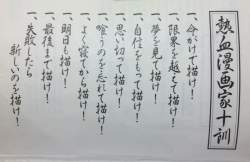 熱血漫画家十訓
一、命がけで描け!
一、限界を越えて描け!
一、夢を見て描け!
一、自信をもって描け!
一、思い切って描け!
一、喰うのを忘れて描け!
一、よく寝てから描け!
一、明日も描け!
一、最後まで描け!
一、失敗したら
新しいのを描け!